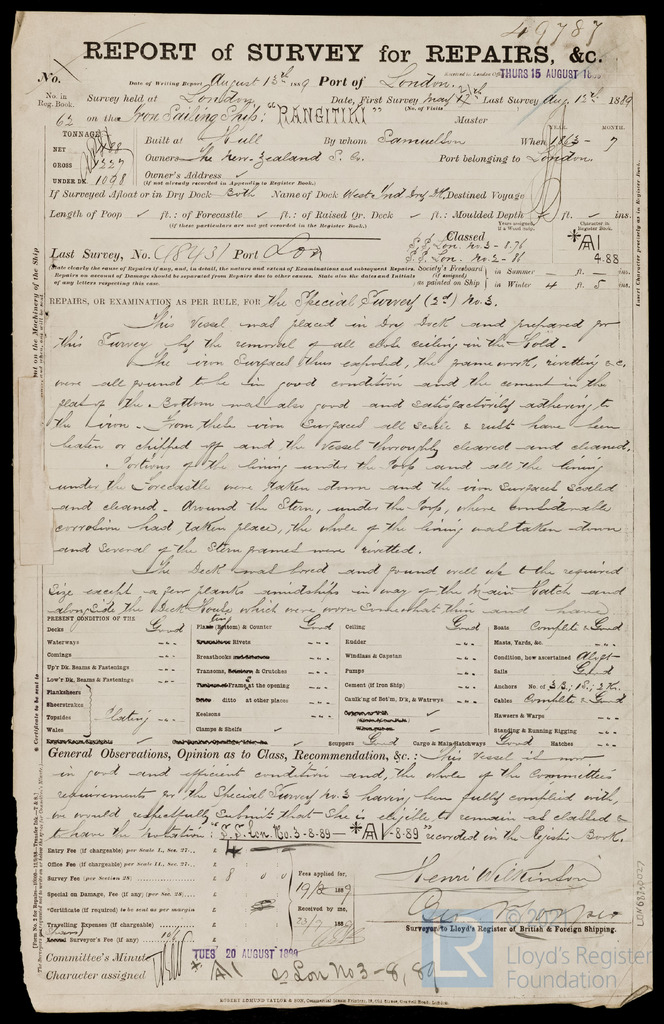 49787
REPORT of SURVEY for REPAIRS, &c.
No. Date of Writing Report August 13th 1889 Port of London. Received in London Office THURS 15 AUGUST
No. in Reg. Book. Survey held at London Date, First Survey May Last Survey Aug. 13th 1889
62 on the Iron Sailing Ship: "RANGITIKI" Master
TONNAGE
NET 1188
GROSS 1227
UNDER DK. 1098
Built at Hull By whom Samuelson When 1863 - 7
YEAR. MONTH.
Owners The New Zealand S. Co. Port belonging to London
Owner's Address ✓
(If not already recorded in Appendix to Register Book.)
If Surveyed Afloat or in Dry Dock Both Name of Dock West Ind Dry Dk Destined Voyage
Length of Poop ✓ ft.: of Forecastle ✓ ft.: of Raised Qr. Deck ✓ ft.: Moulded Depth ft. ins.
(If these particulars are not yet recorded in the Register Book.)
Classed
S.S. Lon. No. 3 - 8.76
S.S. Lon. No. 2 - 86
Character in Register Book.
*A1
4.88
Last Survey, No. (1843) Port Lon
State clearly the cause of Repairs if any, and, in detail, the nature and extent of Examinations and subsequent Repairs.
Repairs on account of Damage should be separated from Repairs due to other causes. State also the dates and Initials
of any letters respecting this case.
Society's Freeboard (if assigned) as painted on Ship
in Summer - ft. - ins.
in Winter 4 ft. 5 ins.
REPAIRS, OR EXAMINATION AS PER RULE, FOR the Special Survey (2d) No. 3.
This Vessel was placed in Dry Dock and prepared for
this Survey by the removal of all close ceiling in the Hold.
The iron Surfaces thus exposed, the frame work, rivetting &c.
were all found to be in good condition and the cement in the
flat of the Bottom was also good and satisfactorily adhering to
the iron. From these iron Surfaces all scale & rust have been
beaten or chipped off and the Vessel thoroughly cleared and cleaned.
Portions of the lining under the Poop and all the lining
under the Forecastle were taken down and the iron surfaces scaled
and cleaned. Around the Stern, under the Poop, where considerable
corrosion had taken place, the whole of the lining was taken down
and several of the Stern frames were rivetted.
The Deck was bored and found well up to the required
size except a few planks amidships in way of the Main Hatch and
alongside the Deck House which were worn somewhat thin and have
PRESENT CONDITION OF THE
Decks Good
Waterways
Comings
Up'r Dk. Beams & Fastenings
Low'r Dk. Beams & Fastenings
Planksheers
Sheerstrakes
Topsides
Wales
Plating ✓
Plating (Bottom) & Counter Good
Rivets
Breasthooks
Transoms, & Crutches
Frame at the opening
ditto at other places
Keelsons
Clamps & Shelfs ✓
Ceiling Good
Rudder
Windlass & Capstan
Pumps
Cement (if Iron Ship)
Caulk'g of Bot'm, D'k, & Watrways
Scuppers Good Cargo & Main Hatchways Good Hatches
Boats Complete & Good
Masts, Yards, &c.
Condition, how ascertained Aloft
Sails Good
Anchors No. of 3 B; 1 S; 2 K.
Cables Complete & Good
Hawsers & Warps
Standing & Running Rigging
General Observations, Opinion as to Class, Recommendation, &c.: This Vessel is now
in good and efficient condition and, the whole of the Committee's
requirements for the Special Survey No. 3 having been fully complied with,
we would respectfully submit that She is eligible to remain as classed &
to have the Notation: "S.S. Lon. No. 3-8-89 - *A1 - 8-89" recorded in the Register Book.
Entry Fee (if chargeable) per Scale I., Sec. 27... £
Office Fee (if chargeable) per Scale II., Sec. 27... £
Survey Fee (per Section 28) £ 8 0 0
Special on Damage, Fee (if any) (per Sec. 28) £
*Certificate (if required) to be sent as per margin £
Travelling Expenses (if chargeable) £
Second Surveyor's Fee (if any) £
Fees applied for,
19/8 1889
Received by me,
Henri Wilkinson
Surveyor to Lloyd's Register of British & Foreign Shipping.
Committee's Minute TUES 20 AUGUST 1889
Character assigned *A1
ss Lon No 3 - 8,89
ROBERT EDMUND TAYLOR & SON,
LON 687-0027
© 2021
LR
Lloyd's Register
Foundation